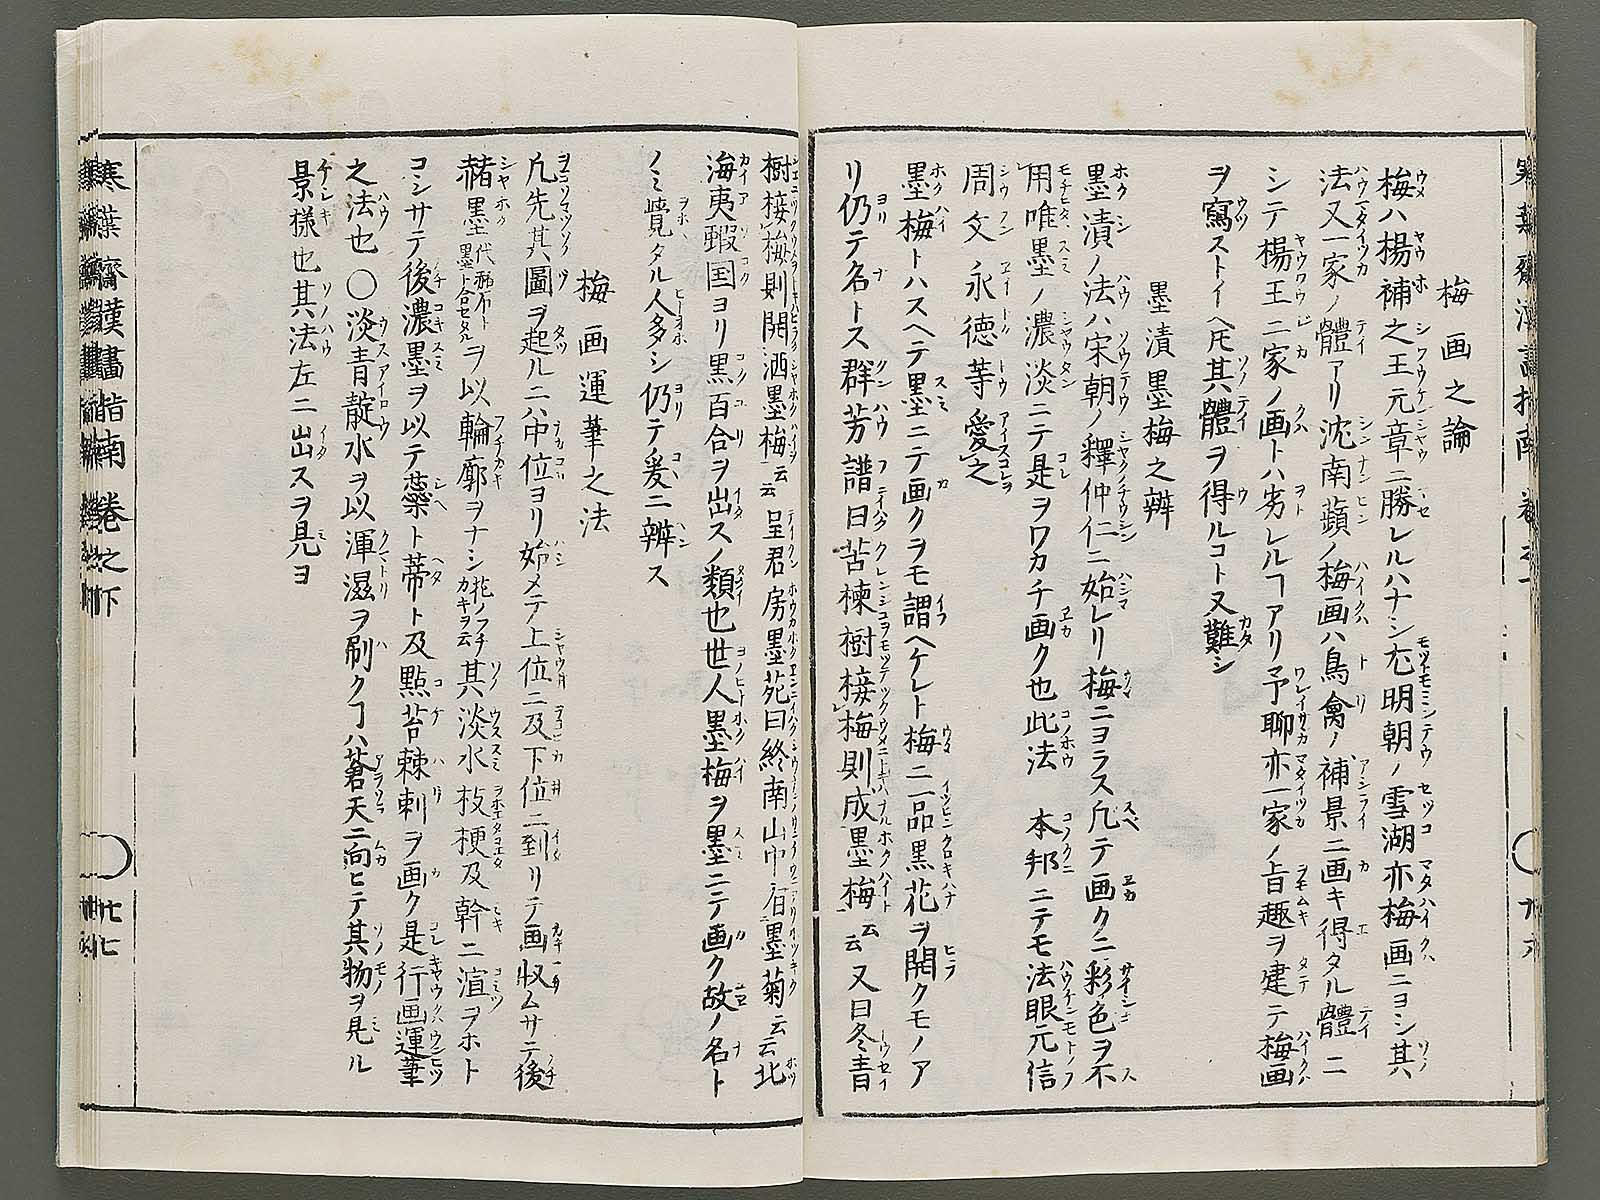 梅画之論
梅ハ楊補之王元章ニ勝レルハナシ尤明朝ノ雪湖亦梅画ニヨシ其
法又一家ノ體アリ沈南蘋ノ梅画ハ鳥禽ノ補景ニ画キ得タル體ニ
シテ楊王二家ノ画トハ劣レルヿアリ予聊亦一家ノ旨趣ヲ建テ梅画
ヲ寫ストイヘ𪜈其體ヲ得ルコト又難シ
墨漬墨梅之辨
墨漬ノ法ハ宋朝ノ釋仲仁ニ始レリ梅ニヨラス凡テ画クニ彩色ヲ不
用唯墨ノ濃淡ニテ是ヲワカチ画ク也此法 本邦ニテモ法眼元信
周文永徳等愛之
墨梅トハスヘテ墨ニテ画クヲモ謂ヘケレト梅ニ一品黒花ヲ開クモノア
リ仍テ名トス群芳譜曰苦楝樹接梅則成墨梅云云又曰冬青
樹接梅則開洒墨梅云云呈君房墨苑曰終南山中有墨菊云云北
海夷蝦国ヨリ黒百合ヲ出スノ類也世人墨梅ヲ墨ニテ画ク故ノ名ト
ノミ覚タル人多シ仍テ爰ニ辨ス
梅画運筆之法
凡先其圖ヲ起ルニハ中位ヨリ始メテ上位ニ及下位ニ到リテ画収ムサテ後
赭墨ヲ以輪廓ヲナシ花ノフチカキヲ云其淡水枝梗及幹ニ渲ヲホト
コシサテ後濃墨ヲ以テ蘂ト蒂ト及點苔棘刺ヲ画ク是行画運筆
之法也〇淡青靛水ヲ以渾滋ヲ刷クヿハ蒼天ニ向ヒテ其物ヲ見ル
景様也其法左ニ出スヲ見ヨ
寒葉齋漢畫指南 巻之下
廿七